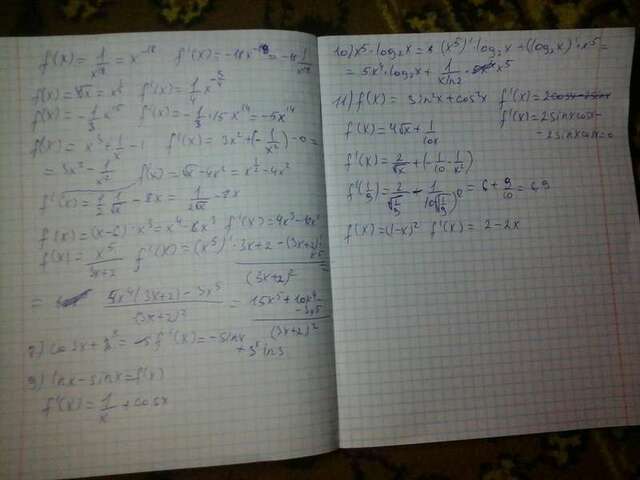 f(x) = 1/x¹⁸ = x⁻¹⁸ f'(x) = -18x⁻¹⁹ = -18 1/x¹⁹
f'(x) = 1/4 x
f(x) = -1/3 x¹⁵ f'(x) = -1/3 · 15x¹⁴ = -5x¹⁴
f(x) = x³ + 1/x - 1 f'(x) = 3x² + (-1/x²) - 0 =
= 3x² - 1/x² f(x) = √x - 4x² = x^½ - 4x²
f'(x) = 1/2 · 1/√x - 8x = 1/2√x - 8x
f(x) = (x-6) · x³ = x⁴ - 6x³ f'(x) =
f(x) = x⁵/3x+2 f'(x) = (x⁵)' · 3x+2 - (3x+2)' · x⁵/(3x+2)²
= 5x⁴(3x+2) - 3x⁵/(3x+2)² = 15x⁵ + 10x⁴ - 3x⁵/(3x+2)²
8) cos3x + f'(x) = -sinx
9) lnx - sinx = f(x)
f'(x) = 1/x + cosx
10) x⁵ · log₂x = (x⁵)' · log₂x + (log₂x)' · x⁵ =
= 5x⁴ · log₂x + 1/xln2 · x⁵
11) f(x) = sin²x + cos²x f'(x) =
f'(x) = 2sinxcosx -
- 2sinxcosx = 0
f(x) = 4√x + 1/10x
f'(x) = 2/√x + (-1/10 · 1/x²)
= 6 + 9/10 = 6,9
f(x) = (1-x)² f'(x) = 2-2x